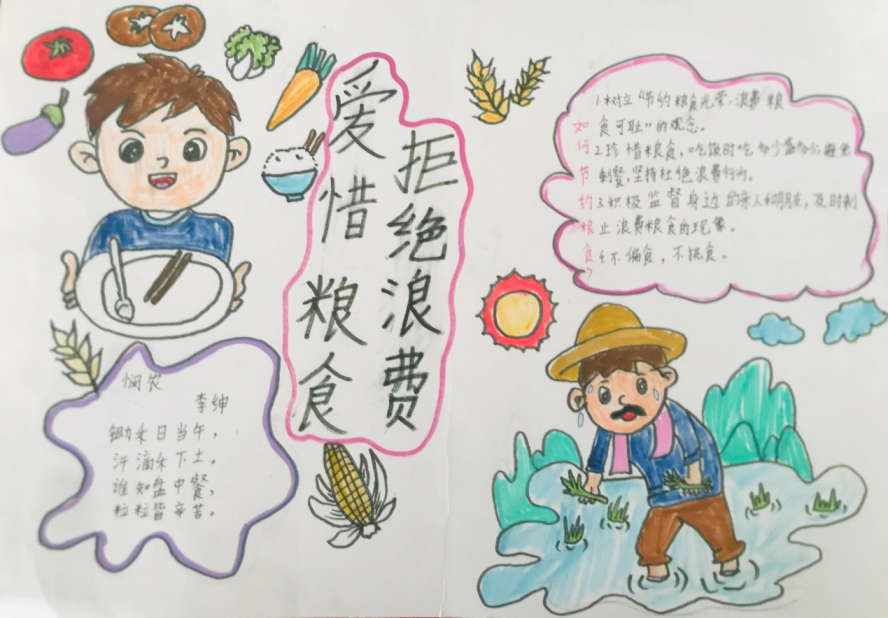 爱惜粮食
拒绝浪费
悯农
李绅
锄禾日当午，
汗滴禾下土。
谁知盘中餐，
粒粒皆辛苦。
如何节约粮食？
1.树立“节约粮食光荣，浪费粮
食可耻”的观念。
2.珍惜粮食，吃饭时吃多少盛多少，避免
剩餐，坚持杜绝浪费行为。
3.积极监督身边的亲人和朋友，及时制
止浪费粮食的现象。
4.不偏食，不挑食。